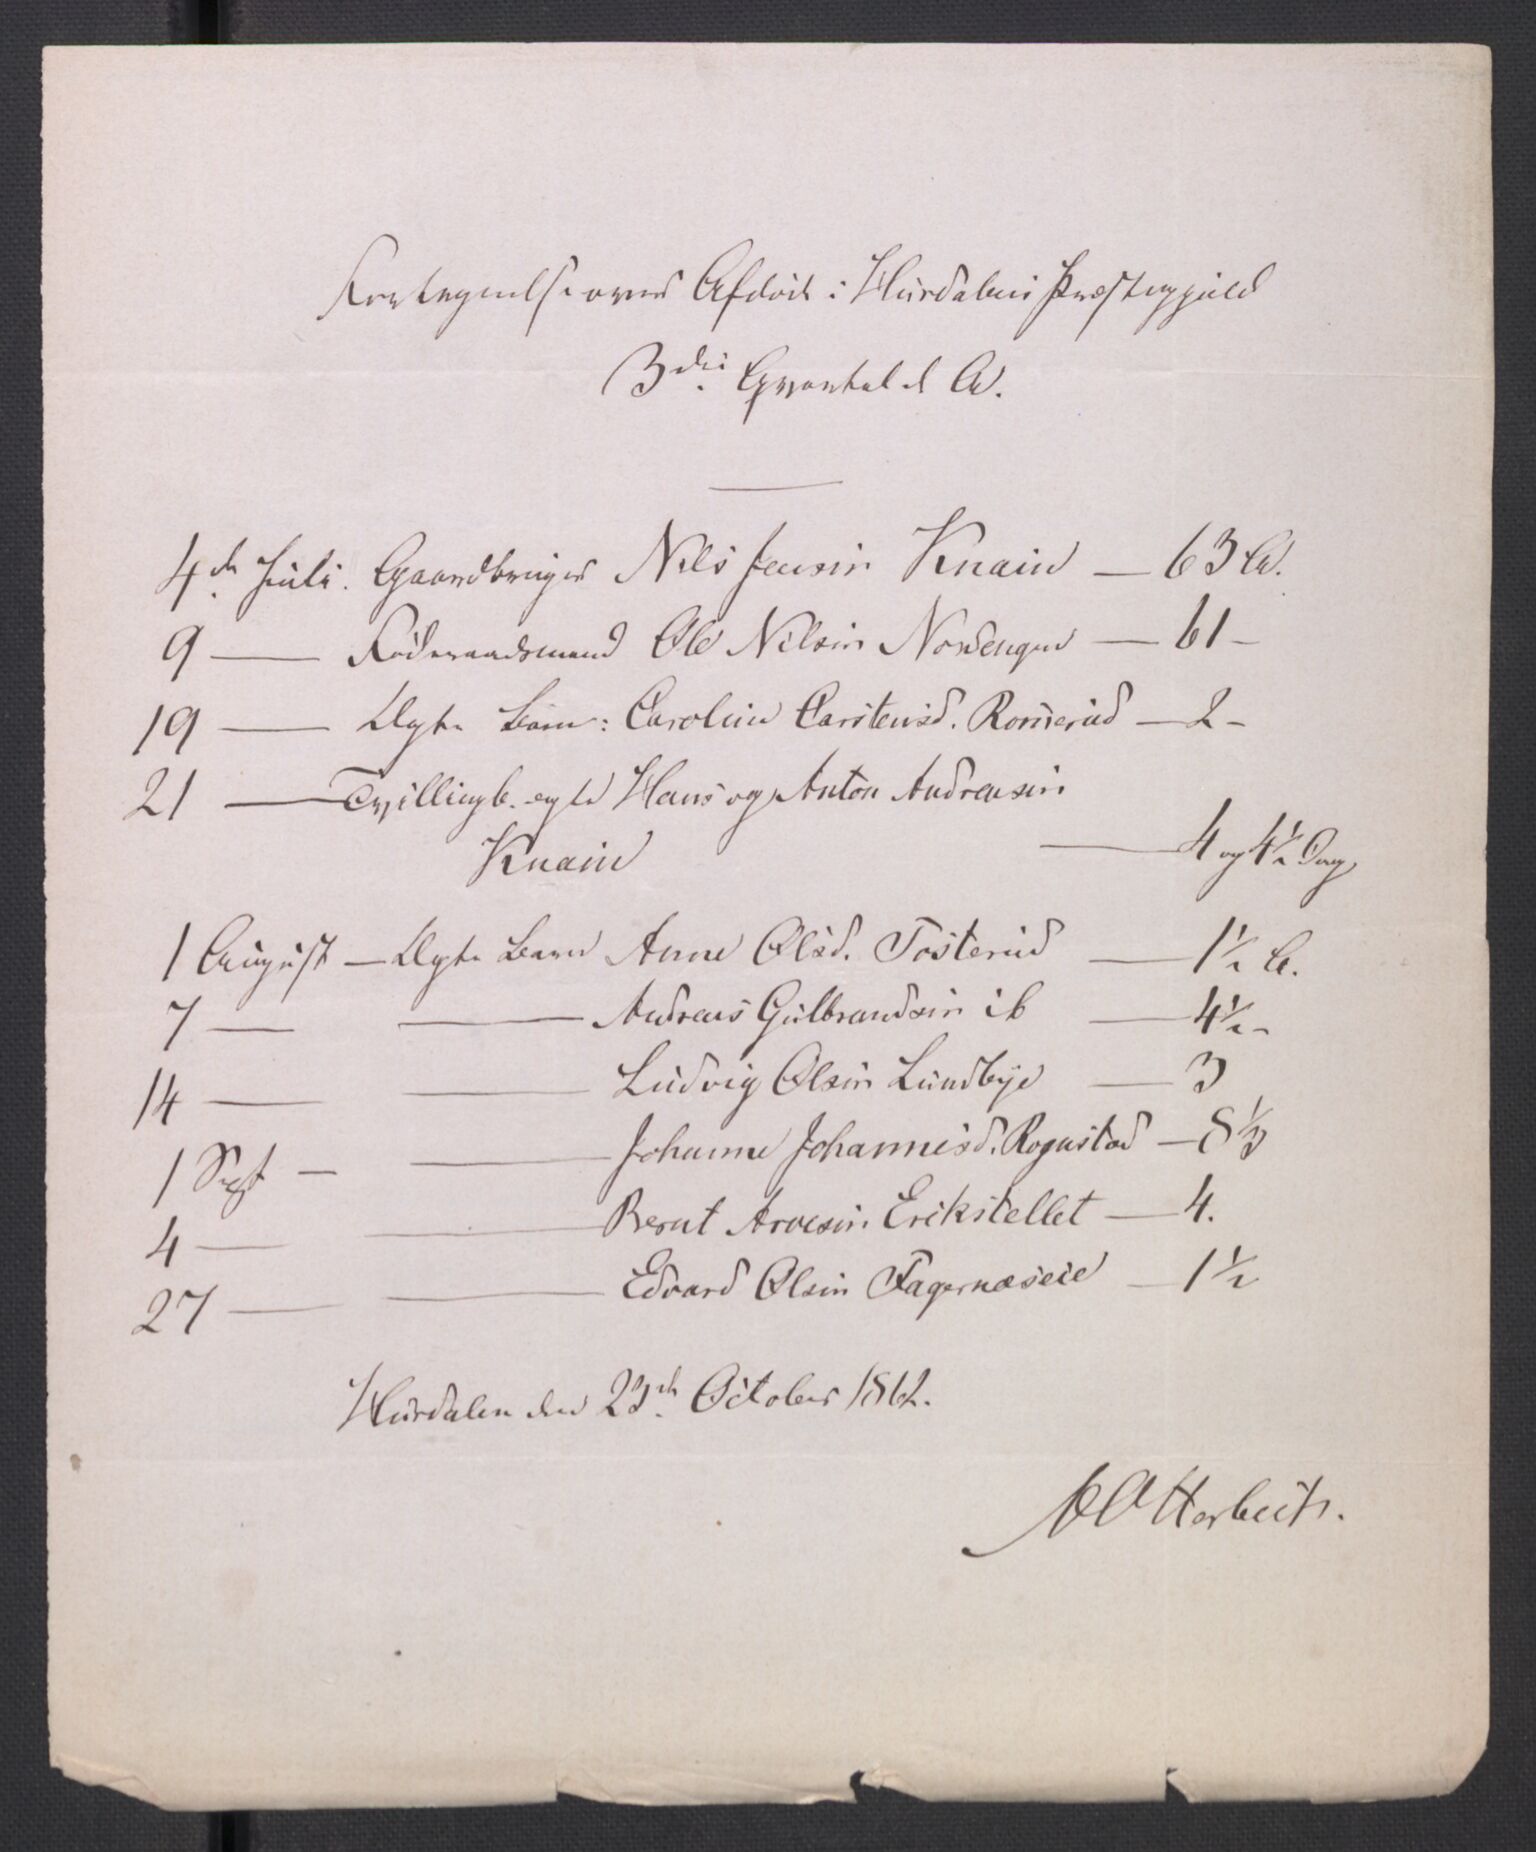 Fortegnelse over Afdøde i Hurdalens Præstegjeld
3die Qvartal d. A.
4de Juli. Gaardbruger Nils Jensen Knain — 63 A.
9 — Föderaadsmand Ole Nilsen Nordengen — 61 –
19 — Uægte Barn: Caroline Carstensd. Rorierud — 2 –
21 — Tvillingb. ægte Hans og Anton Andreasen
Knain — 4 og 4½ Dag
1 August — Uægte Barn Anne Olsd. Tosterud — 1½ A.
7 — — Andreas Gulbrandsen ib — 4½ –
14 — — Ludvig Olsen Lundbye — 3
1 Sept — — Johanne Johannesd. Rognstad — 8⅓
4 — — Bernt Arvesen Erikstellet — 4.
27 — — Edvard Olsen Fagernæseie — 1½
Hurdalen den 23de October 1862.
Otterbech.